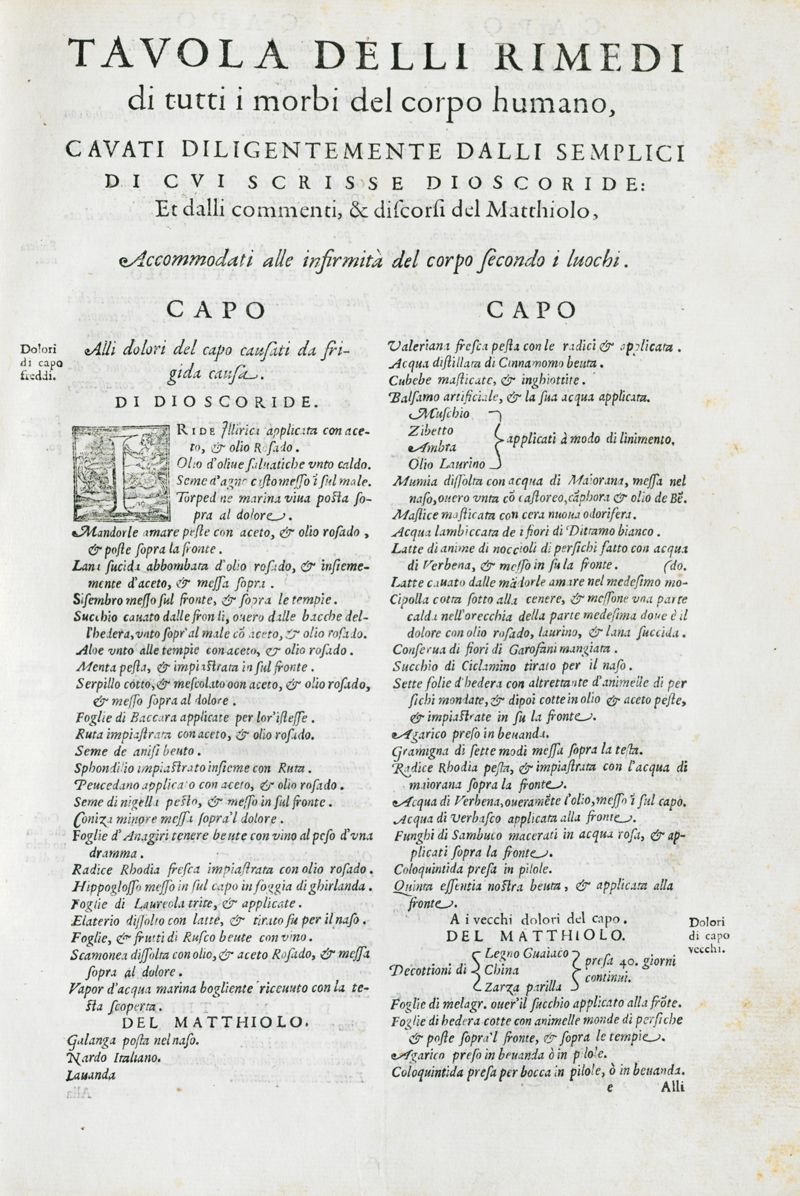 TAVOLA DELLI RIMEDI
di tutti i morbi del corpo humano,
CAVATI DILIGENTEMENTE DALLI SEMPLICI
DI CVI SCRISSE DIOSCORIDE:
Et dalli commenti, & diſcorſi del Matthiolo,
Accommodati alle infirmità del corpo ſecondo i luochi.
CAPO
Dolori
di capo
freddi.
Alli dolori del capo cauſati da fri-
gida cauſa.
DI DIOSCORIDE.
IRIDE Illirica applicata con ace-
to, & olio Roſado.
Olio d'oliue ſaluatiche vnto caldo.
Seme d'agno caſto meſſo ĩ ſul male.
Torpedine marina viua poſta ſo-
pra al dolore.
Mandorle amare peſte con aceto, & olio roſado,
& poſte ſopra la fronte.
Lana ſucida abbombata d'olio roſado, & inſieme-
mente d'aceto, & meſſa ſopra.
Siſembro meſſo ſul fronte, & ſopra le tempie.
Succhio cauato dalle frondi, ouero dalle bacche del-
l'hedera, vnto ſopr'al male cõ aceto, & olio roſado.
Aloe vnto alle tempie con aceto, & olio roſado.
Menta peſta, & impiaſtrata in ſul fronte.
Serpillo cotto, & meſcolato con aceto, & olio roſado,
& meſſo ſopra al dolore.
Foglie di Baccara applicate per lor'iſteſſe.
Ruta impiaſtrata con aceto, & olio roſado.
Seme de aniſi beuto.
Sphondilio impiaſtrato inſieme con Ruta.
Peucedano applicato con aceto, & olio roſado.
Seme di nigella peſto, & meſſo in ſul fronte.
Coniza minore meſſa ſopra'l dolore.
Foglie d'Anagiri tenere beute con vino al peſo d'vna
dramma.
Radice Rhodia freſca impiaſtrata con olio roſado.
Hippogloſſo meſſo in ſul capo in foggia di ghirlanda.
Foglie di Laureola trite, & applicate.
Elaterio diſſolto con latte, & tirato ſu per il naſo.
Foglie, & frutti di Ruſco beute con vino.
Scamonea diſſolta con olio, & aceto Roſado, & meſſa
ſopra al dolore.
Vapor d'acqua marina bogliente riceuuto con la te-
ſta ſcoperta.
DEL MATTHIOLO.
Galanga poſta nel naſo.
Nardo Italiano.
Lauanda
CAPO
Valeriana freſca peſta con le radici & applicata.
Acqua diſtillata di Cinnamomo beuta.
Cubebe maſticate, & inghiottite.
Balſamo artificiale, & la ſua acqua applicata.
Muſchio
Zibetto
Ambra
Olio Laurino
applicati à modo di linimento.
Mumia diſſolta con acqua di Maiorana, meſſa nel
naſo, ouero vnta cõ caſtoreo, cãphora & olio de Bẽ.
Maſtice maſticata con cera nuoua odorifera.
Acqua lambiccata de i fiori di Dittamo bianco.
Latte di anime di noccioli di perſichi fatto con acqua
di Verbena, & meſſo in ſu la fronte. (do.
Latte cauato dalle mãdorle amare nel medeſimo mo-
Cipolla cotta ſotto alla cenere, & meſſone vna parte
calda nell'orecchia della parte medeſima doue è il
dolore con olio roſado, laurino, & lana ſuccida.
Conſerua di fiori di Garofani mangiata.
Succhio di Ciclamino tirato per il naſo.
Sette folie d'hedera con altrettante d'animelle di per
ſichi mondate, & dipoi cotte in olio & aceto peſte,
& impiaſtrate in ſu la fronte.
Agarico preſo in beuanda.
Gramigna di ſette modi meſſa ſopra la teſta.
Radice Rhodia peſta, & impiaſtrata con l'acqua di
maiorana ſopra la fronte.
Acqua di Verbena, oueramẽte l'olio, meſſo ĩ ſul capo.
Acqua di Verbaſco applicata alla fronte.
Funghi di Sambuco macerati in acqua roſa, & ap-
plicati ſopra la fronte.
Coloquintida preſa in pilole.
Quinta eſſentia noſtra beuta, & applicata alla
fronte.
A i vecchi dolori del capo.
Dolori
di capo
vecchi.
DEL MATTHIOLO.
Decottioni di
Legno Guaiaco
China
Zarza parilla
preſa 40. giorni
continui.
Foglie di melagr. ouer'il ſucchio applicato alla frõte.
Foglie di hedera cotte con animelle monde di perſiche
& poſte ſopra'l fronte, & ſopra le tempie.
Agarico preſo in beuanda ò in pilole.
Coloquintida preſa per bocca in pilole, ò in beuanda.
e Alli